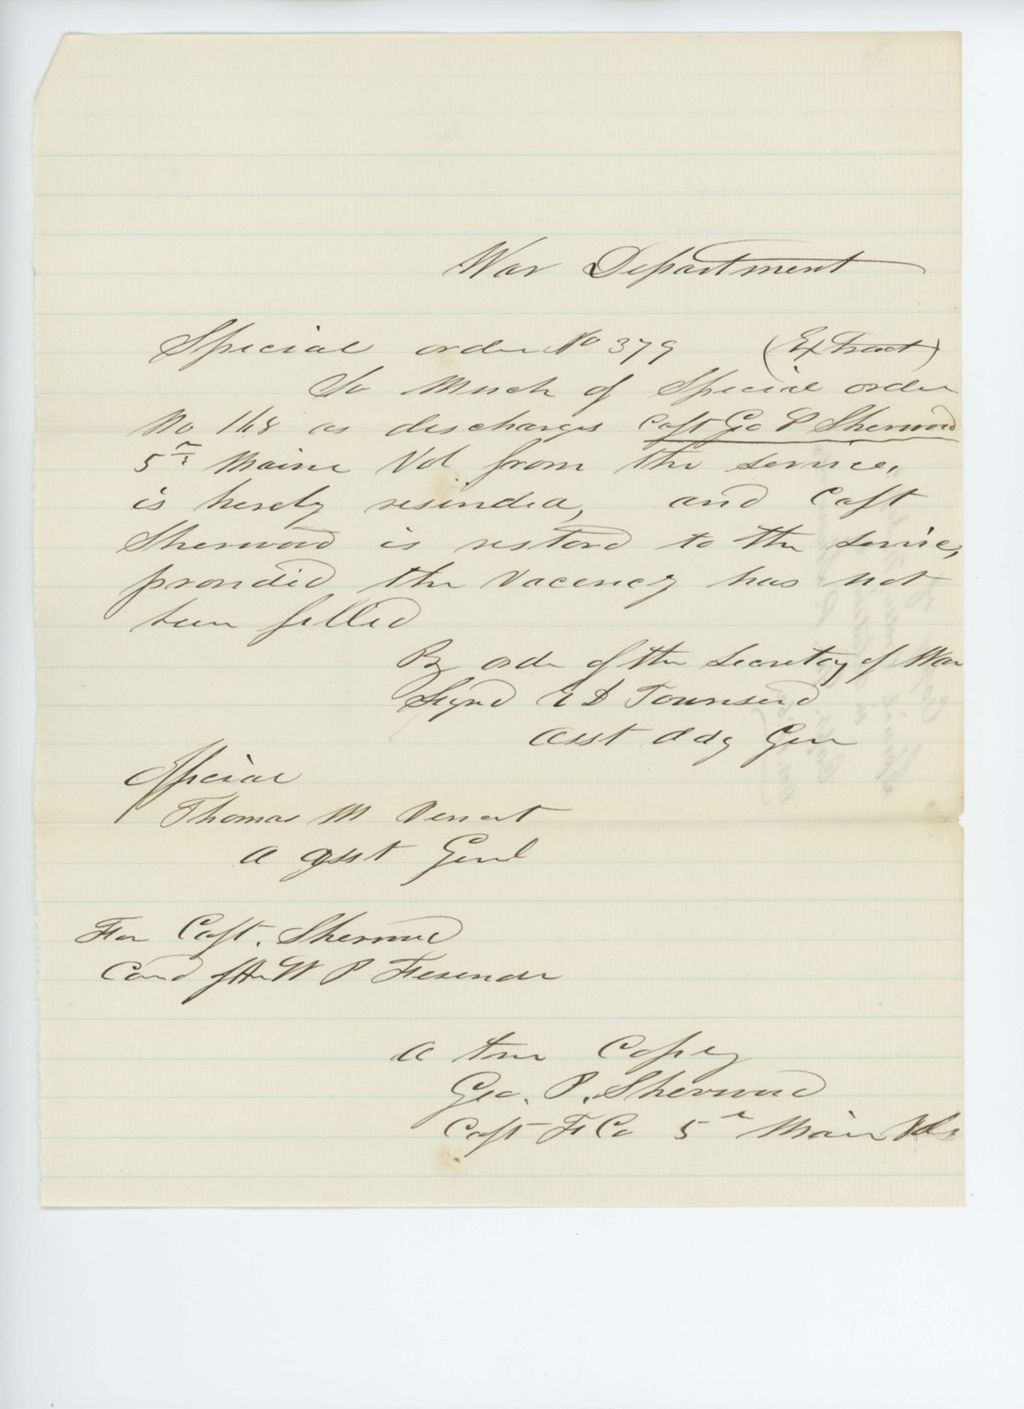 War Department
Special order No 379 (Extract)
So Much of Special order
No 168 as discharges Capt Geo P Sherwood
5th Maine Vol from the service,
is hereby resinded, and Capt
Sherwood is restord to the service,
provided the Vacency has not
been filled
By order of the Secretary of War
Signd E D Townsend
Asst Adg Gen
Official
Thomas M Vincent
A Asst Genl
For Capt. Sherwood
Care of Hon W P Fesenden
A true Copey
Geo. P. Sherwood
Capt F Co 5th Maine Vols